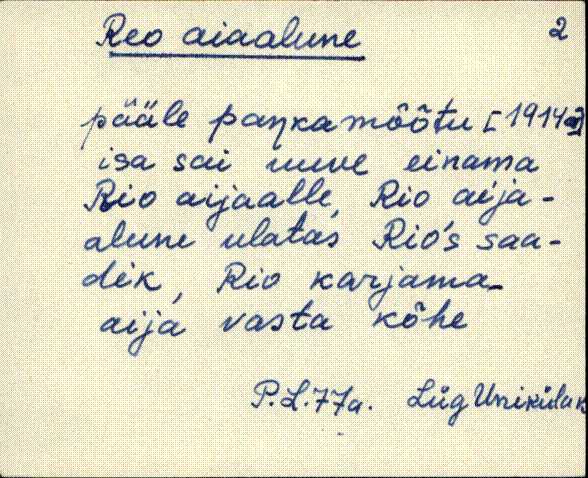 Reo aiaalune 2
pääle paŋkamõõtu [1914a]
isa sai uuve einama
Rio aijaalle, Rio aija-
alune ulatas Rio's saa-
dik, Rio karjama-
aija vasta kõhe
P.L.77a. Lüg Unikülak